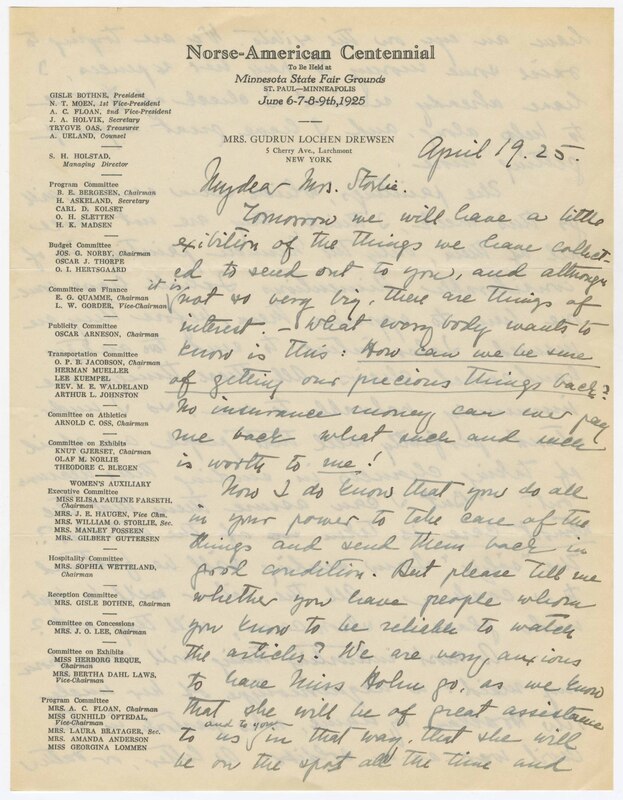 Norse-American Centennial
To Be Held at
Minnesota State Fair Grounds
ST. PAUL—MINNEAPOLIS
June 6-7-8-9th, 1925
MRS. GUDRUN LOCHEN DREWSEN
5 Cherry Ave., Larchmont
NEW YORK
GISLE BOTHNE, President
N. T. MOEN, 1st Vice-President
A. C. FLOAN, 2nd Vice-President
J. A. HOLVIK, Secretary
TRYGVE OAS, Treasurer
A. UELAND, Counsel
S. H. HOLSTAD,
Managing Director
Program Committee
B. E. BERGESEN, Chairman
H. ASKELAND, Secretary
CARL D. KOLSET
O. H. SLETTEN
H. K. MADSEN
Budget Committee
JOS. G. NORBY, Chairman
OSCAR J. THORPE
O. I. HERTSGAARD
Committee on Finance
E. G. QUAMME, Chairman
L. W. GORDER, Vice-Chairman
Publicity Committee
OSCAR ARNESON, Chairman
Transportation Committee
O. P. B. JACOBSON, Chairman
HERMAN MUELLER
LEE KUEMPEL
REV. M. E. WALDELAND
ARTHUR L. JOHNSTON
Committee on Athletics
ARNOLD C. OSS, Chairman
Committee on Exhibits
KNUT GJERSET, Chairman
OLAF M. NORLIE
THEODORE C. BLEGEN
WOMEN'S AUXILIARY
Executive Committee
MISS ELISA PAULINE FARSETH,
Chairman
MRS. J. E. HAUGEN, Vice Chm.
MRS. WILLIAM O. STORLIE, Sec.
MRS. MANLEY FOSSEEN
MRS. GILBERT GUTTERSEN
Hospitality Committee
MRS. SOPHIA WETTELAND,
Chairman
Reception Committee
MRS. GISLE BOTHNE, Chairman
Committee on Concessions
MRS. J. O. LEE, Chairman
Committee on Exhibits
MISS HERBORG REQUE,
Chairman
MRS. BERTHA DAHL LAWS,
Vice-Chairman
Program Committee
MRS. A. C. FLOAN, Chairman
MISS GUNHILD OFTEDAL,
Vice-Chairman
MRS. LAURA BRATAGER, Sec.
MRS. AMANDA ANDERSON
MISS GEORGINA LOMMEN
April 19. 25.
My dear Mrs. Storlie.
Tomorrow we will have a little
exibition of the things we have collect-
ed to send out to you, and although
it is not so very big, there are things of
interest. – What every body wants to
know is this: How can we be sure
of getting our precious things back?
No insurance money can ever pay
me back what such and such
is worth to me!
Now I do know that you do all
in your power to take care of the
things and send them back in
good condition. But please tell me
whether you have people whom
you know to be reliable to watch
the articles? We are very anxious
to have Miss Holm go, as we know
that she will be of great assistance
to us and to you in that way, that she will
be on the spot all the time and